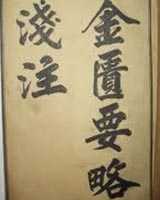 金匱要略
淺注